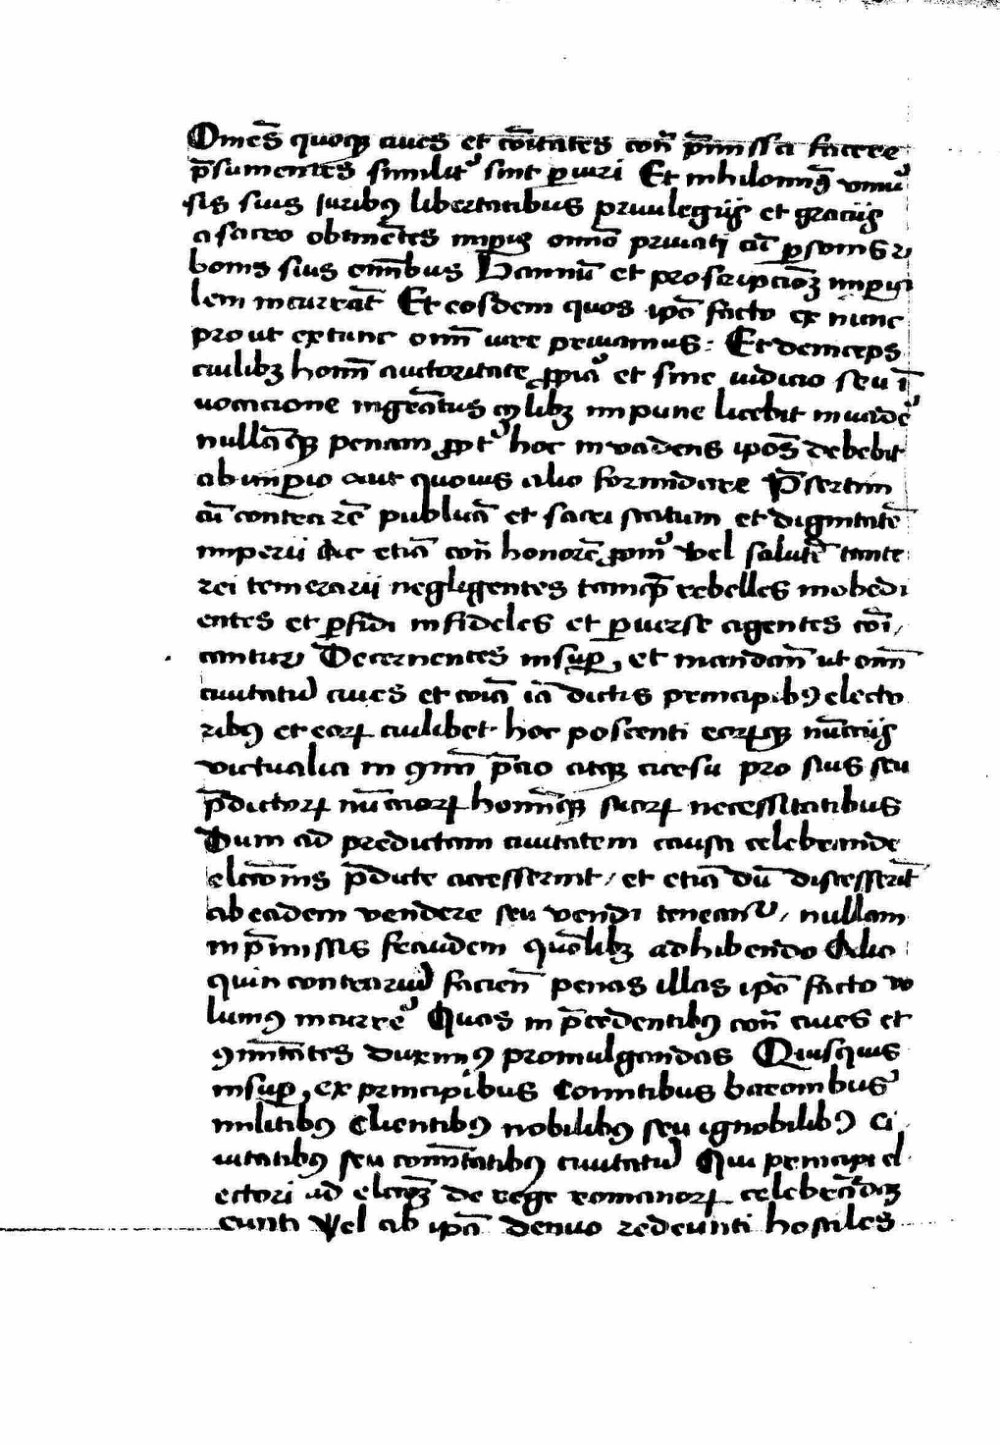 Om̅es quoqꝫ ciues et co̅itates con̅ p̅missa facere
p̅sumentes similit᾽ sint ꝑiuri Et nihilomin᾽ vniu᾽
sis suis juribꝰ libertatibus priuilegijs et gracijs
a sacro obtine̅tes imꝑio omnĩo priuati cu̅ ꝑsonis ⁊
bonis suis om̅ibus Bannu̅ et proscripcio̅ꝫ imꝑia
lem incurra̅t Et eosdem quos ip̅o facto ex nunc
prout extunc om̅i iure priuamus : Et deinceps
cuilibꝫ homi̅ auctoritate ꝓpia᾽ et sine iudicio seu i̅
uocacione mgr̅atus qͥlibꝫ impune licebit inuade᾽
nulla̅qꝫ penam ꝓpt᾽ hoc inuadens ip̅os debebit
ab imꝑio aut quouis alio formidare P̅sertim
cu̅ contra re̅ publica̅ et sacri statum et dignitate̅
imperii Ac etia̅ con̅ honore̅ ꝓpri᾽ vel salute̅ tante
rei temerarii negligentes tamqᷓ rebelles inobedi
entes et ꝑfidi infideles et ꝑuerse agentes co̅i/
cantur Decernentes insuꝑ et mandam̅ ut om̅
ciuitatu̅ ciues et co̅ia ia̅ dictis principibꝰ electo
ribꝰ et eorꝝ cuilibet hoc poscenti eorꝝqꝫ nu̅cijs
victualia in ꝯmu̅i p̅cio atqꝫ cursu pro suis seu
p̅dictorꝝ nu̅ciorꝝ homi̅qꝫ suorꝝ necessitatibus
Dum ad predictam ciuitatem causa celebrande
elcc̅onis p̅dicte accesserint / et etia̅ du̅ discesseri̅t
ab eadem vendere seu vendi teneant᾽ / nullam
in p̅missis fraudem quo̅libꝫ adhibendo Alio
quin contrariu̅ facien̅ penas illas ip̅o facto vo
lumꝰ incurre᾽ Quas in p̅cedentibꝰ con̅ ciues et
ꝯmu̅itates duximꝰ promulgandas Quisquis
insuꝑ ex principibus Comitibus baronibus
militibꝰ Clientibꝰ nobilibꝰ seu ignobilibꝰ Ci
uitatibꝰ seu com̅u̅tatibꝰ ciuitatu̅ Qui principi el
ectori ad elcc̅oꝫ de rege romanorꝝ celebra̅daꝫ
eunti Vel ab ip̅a denuo redeunti hostiles